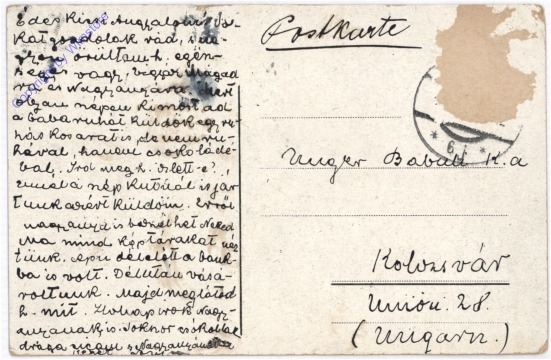 Édes Kis Angyalom! So-
kat gondolok rád,
örültem h. egén-
séges vagy, vigyázz Magad
ra és Nagyanyára. Mert
olyan népen kimostad
a babaruhát küldök egy ru-
hás kosarat is, de nem ru-
hával, hanem csokoládé-
val. Írd meg h. ízlett-e?
a nép kutnál is jár
tunk azért küldöm. Erről
nagyanyád is beszélhet Neked
Ma mind képtárakat néz
tünk. Apu délelőtt a bank
ba is volt. Délután vásá-
roltunk. Majd meglátod
h. mit. Holnap írok Nagy-
anyának is. Sokszor csókollak
drága
Postkarte
6.
Unger Babuli K.a
Kolozsvár
Unión. 28.
(Ungarn.)